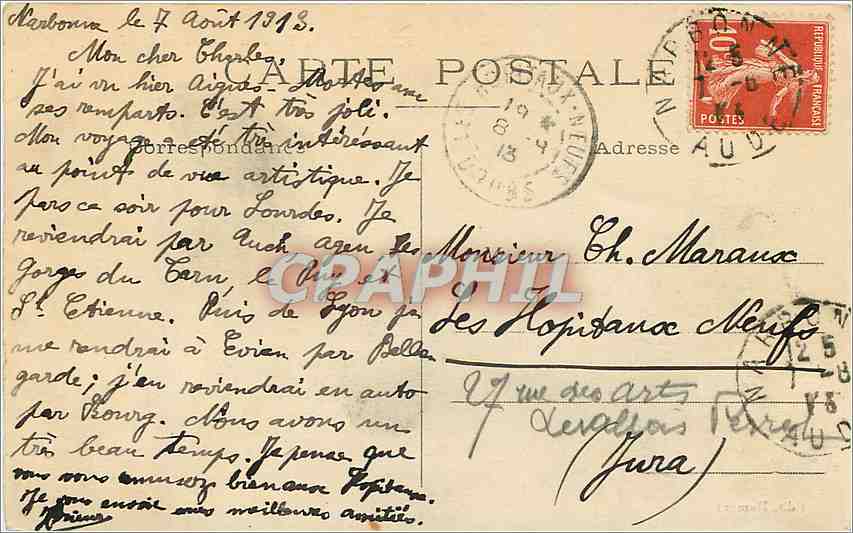 Narbonne le 7 Août 1913.
Mon cher Charles,
CARTE POSTALE
J'ai vu hier Aigues-Mortes avec
ses remparts. C'est très joli.
Mon voyage a été très intéressant
Correspondance
au point de vue artistique. Je
pars ce soir pour Lourdes. Je
reviendrai par Auch Agen les
Gorges du Tarn, le Puy et
St Etienne. Puis de Lyon je
me rendrai à Evian par Belle
garde; j'en reviendrai en auto
par Bourg. Nous avons un
très beau temps. Je pense que
vous vous amusez bien aux Hopitaux.
Je vous envoie mes meilleures amitiés.
Adresse
Monsieur Ch. Maraux
Les Hopitaux Neufs
27 rue des Arts
Levallois Perret
(Jura)
10c
REPUBLIQUE FRANÇAISE
POSTES
NARBONNE
AUDE
HOPITAUX-NEUFS
19 *
8 -8
13
DOUBS
NARBONNE
AUDE
CPAPHIL